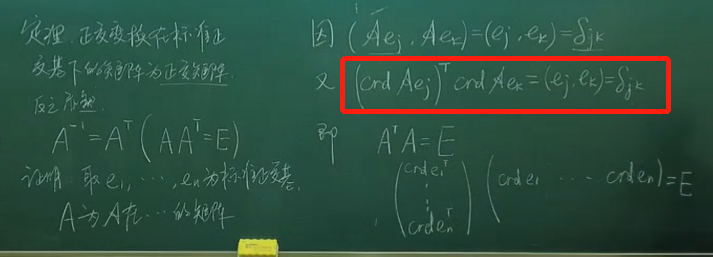 定理. 正交变换在标准正
交基下的矩阵为正交矩阵.
反之亦然
A⁻¹=Aᵀ(AAᵀ=E)
证明. 取e₁, ⋯, eₙ为标准正交基,
A为A在⋯的矩阵
因 (Aeⱼ, Aeₖ)=(eⱼ, eₖ)=δⱼₖ
又 (crd Aeⱼ)ᵀ crd Aeₖ=(eⱼ, eₖ)=δⱼₖ
即 AᵀA=E
(crde₁ᵀ ⋮ crdeₙᵀ) (crde₁ ⋯ crdeₙ)=E